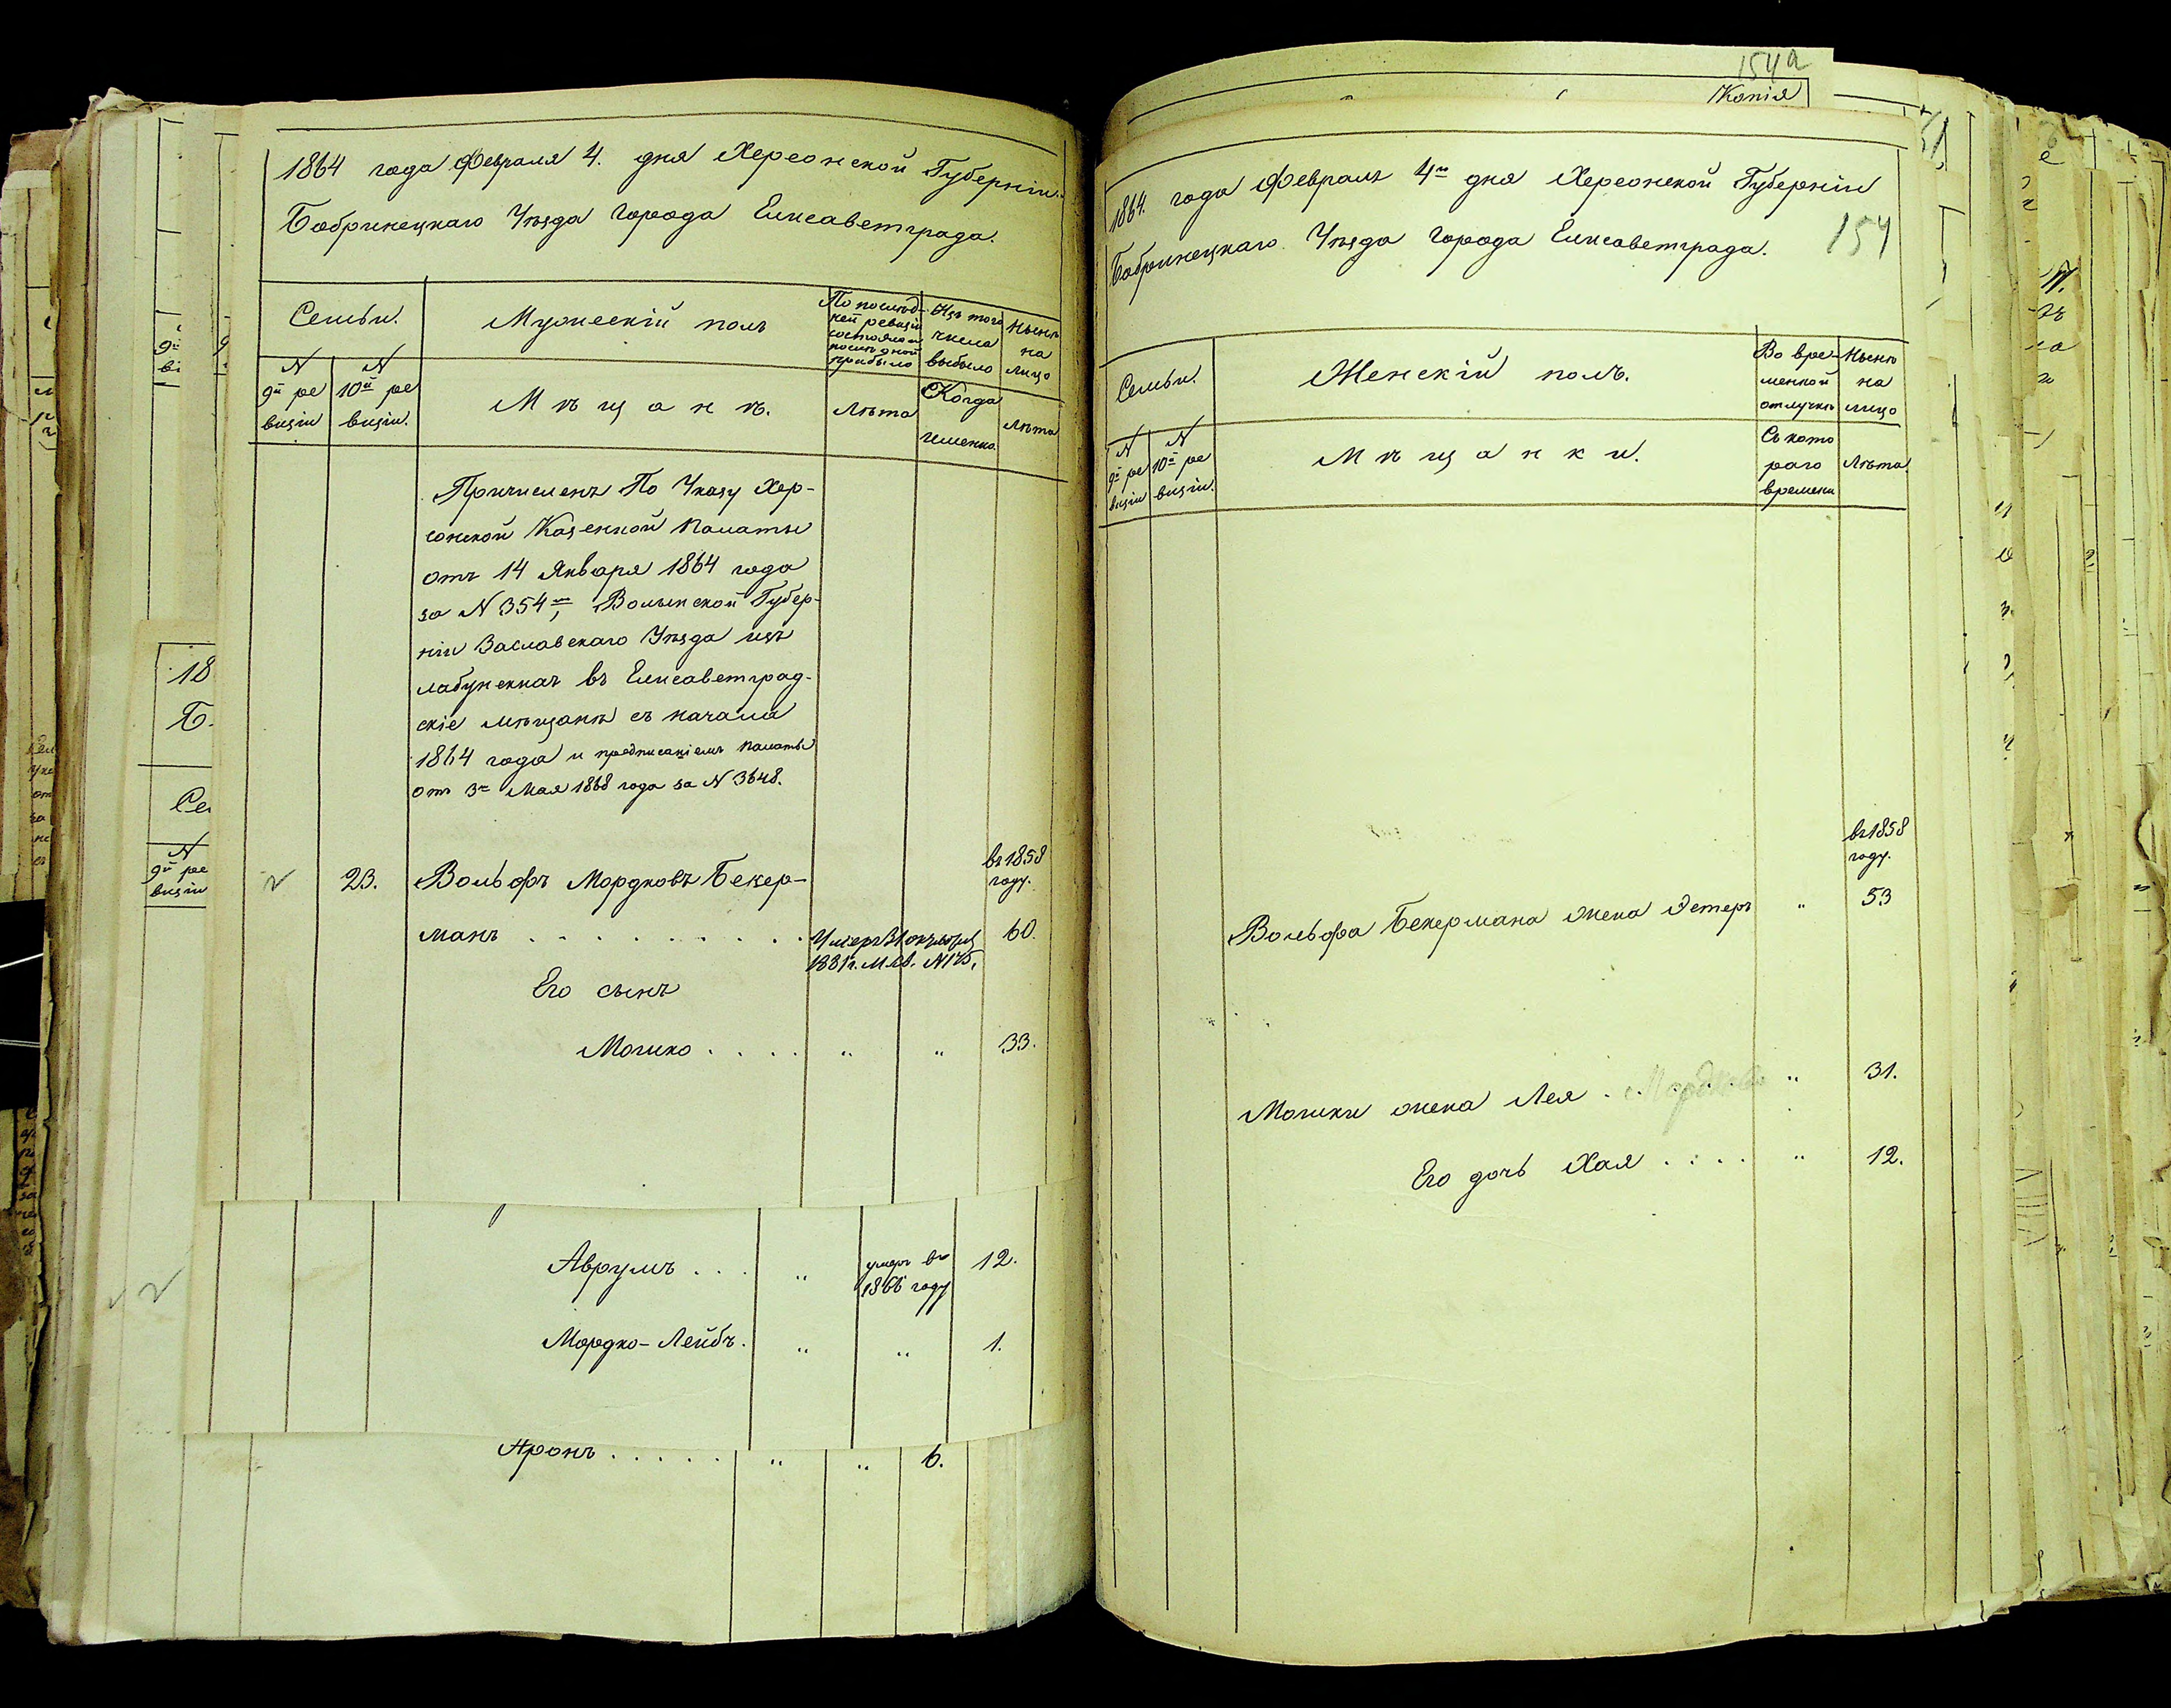 1864 года Февраля 4. дня Херсонской Губерніи
Бобринецкаго Уѣзда Города Елисаветграда.
Семьи.
Мужескій полъ
По послѣд-
ней ревизіи
состояло и
послѣ оной
прибыло
Изъ того
числа
выбыло
Нынѣ
на
лицо
N
9й ре
визіи
N
10й ре
визіи.
Мѣщанѣ.
Лѣта
Когда
именно
Лѣта
Причисленъ По Указу Хер-
сонской Казенной Палаты
отъ 14 Января 1864 года
за N 354м, Волынской Губер-
ніи Заславскаго Уѣзда изъ
лабунскихъ въ Елисаветград-
скіе мѣщанѣ съ начала
1864 года и предписаніемъ Палаты
отъ 3го Мая 1868 года за N 3648.
23.
Вольфъ Мордковъ Бекер-
манъ
въ 1858
году.
60.
Умеръ 31 октября
1881г. М. св. N 175.
Его сынъ
Мошко . . . . " " 33.
Аврумъ . . . " умеръ въ
1866 году
12.
Мордко-Лейбъ. " " 1.
Аронъ . . . . . " " 6.
154а
Копія
1864. года Февраля 4го дня Херсонской Губерніи
Бобринецкаго Уѣзда Города Елисаветграда.
154
Семьи.
Женскій полъ.
Во вре-
менной
отлучкѣ
Нынѣ
на
лицо
N
9й ре
визіи
N
10й ре
визіи.
Мѣщанки.
Съ кото
раго
времени
Лѣта
въ 1858
году.
Вольфа Бекермана жена Эстеръ " 53
Мошки жена Лея . Мордкова " 31.
Его дочь Хая . . . . " 12.
18
Б.
N
9й ре
визіи